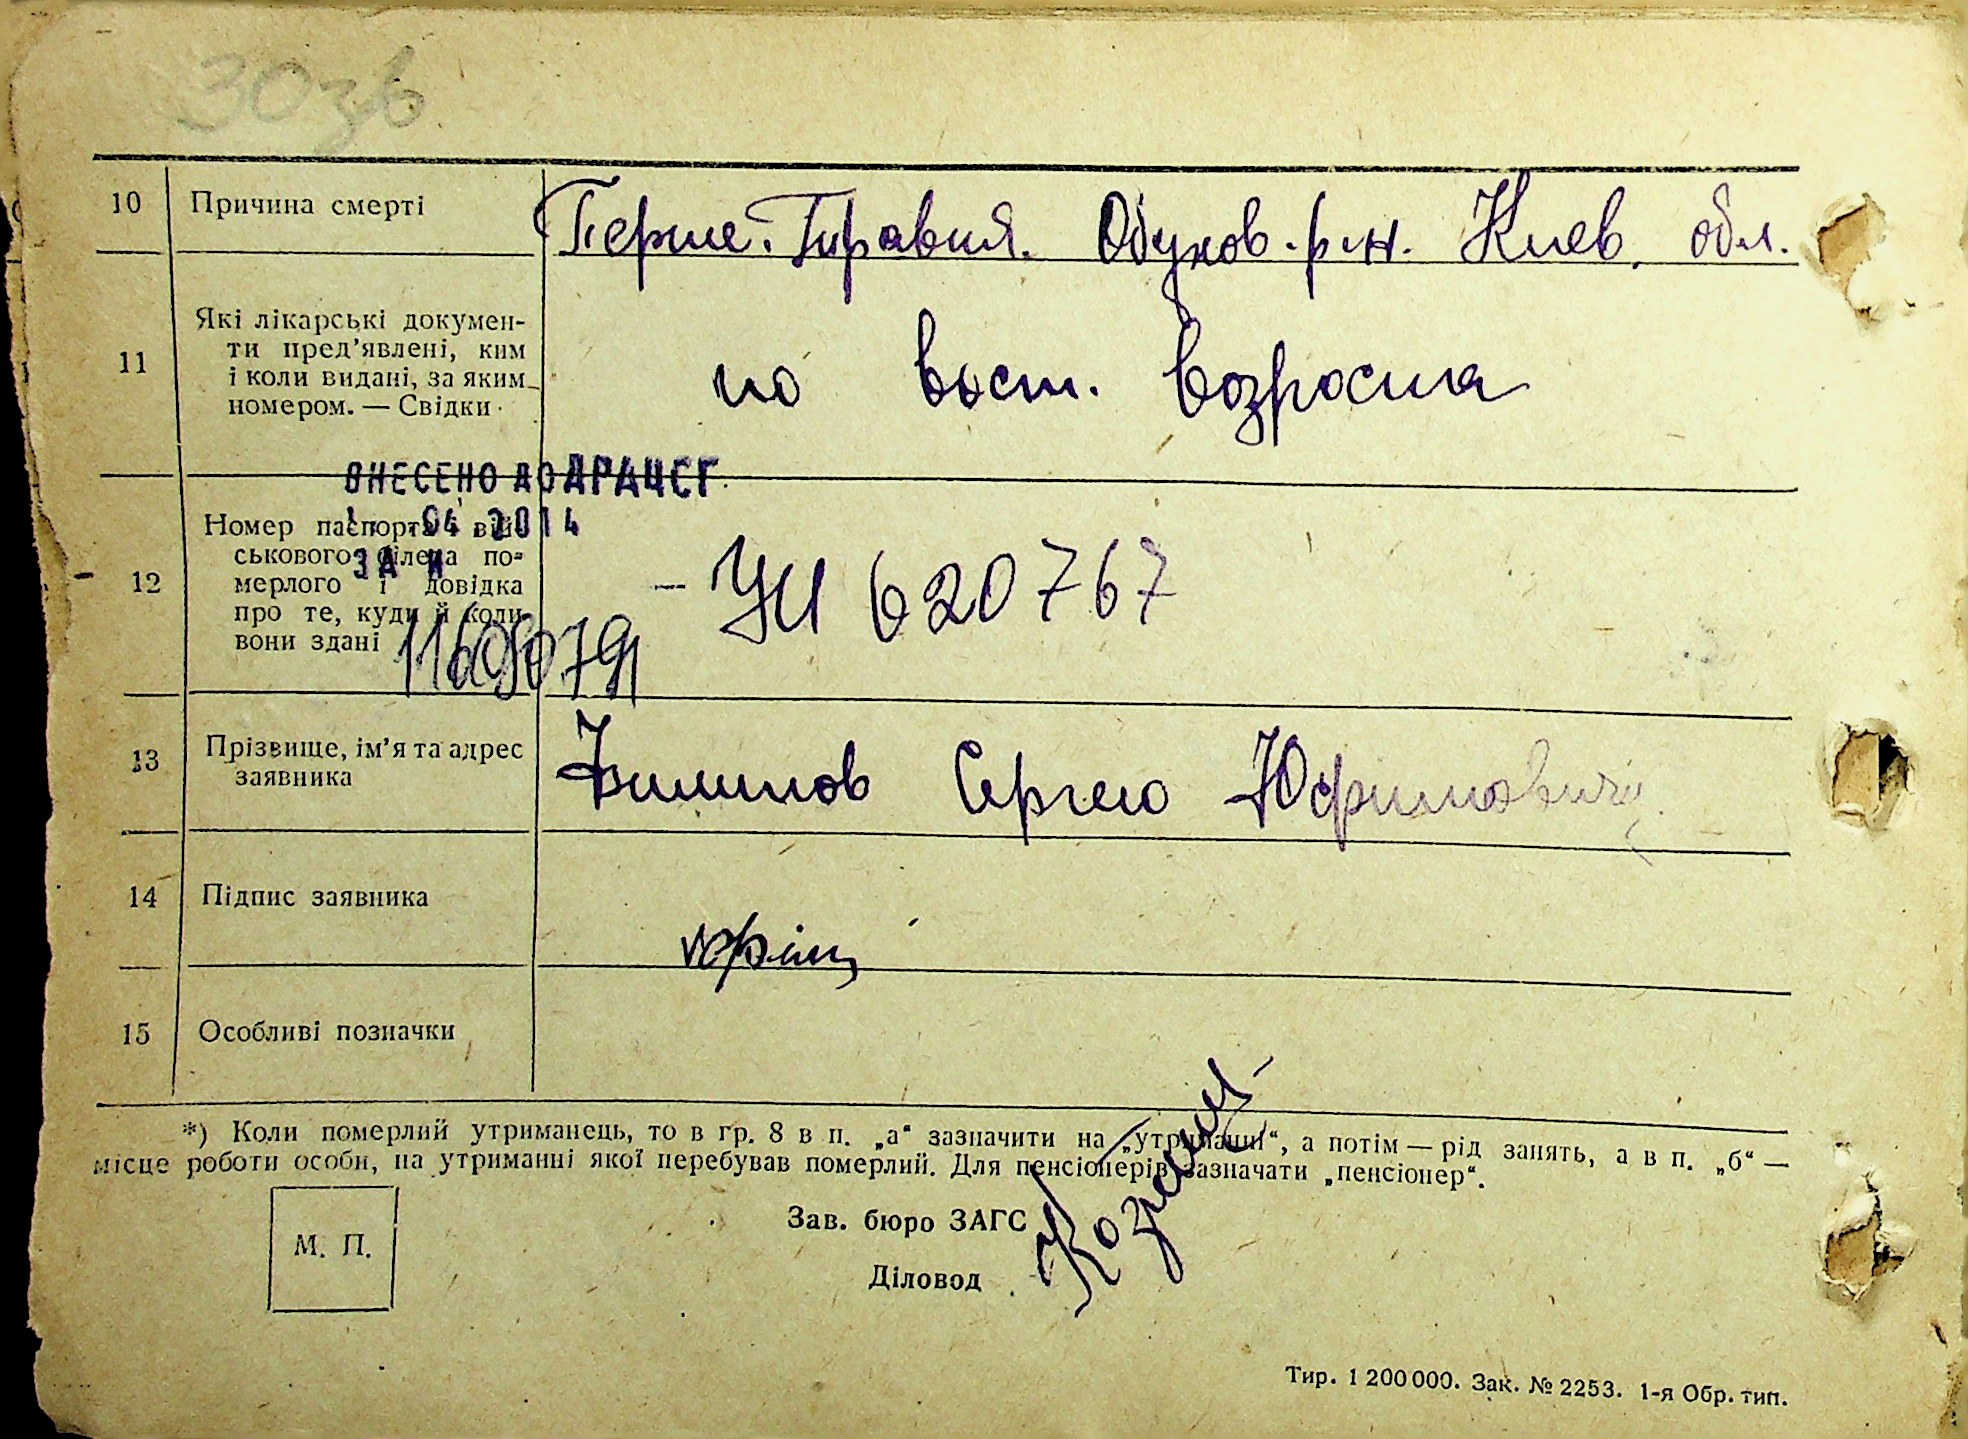 30зв
10 Причина смерті Перше. Травня. Обухов. р-н. Киев. обл.
11 Які лікарські докумен-
ти пред'явлені, ким
і коли видані, за яким
номером. — Свідки
по вост. возроста
ВНЕСЕНО ДО ДРАЦСГ
04 2014
ЗА №
12 Номер паспорта і вій-
ськового білета по-
мерлого і довідка
про те, куди й коли
вони здані
– УИ 620767
11605079
13 Прізвище, ім'я та адрес
заявника
Филипов Сергею Юфимовичу
14 Підпис заявника
15 Особливі позначки
*) Коли померлий утриманець, то в гр. 8 в п. „а“ зазначити на „утриманні“, а потім — рід занять, а в п. „б“ —
місце роботи особи, на утриманні якої перебував померлий. Для пенсіонерів зазначати „пенсіонер“.
М. П.
Зав. бюро ЗАГС
Діловод
Тир. 1 200 000. Зак. № 2253. 1-я Обр. тип.